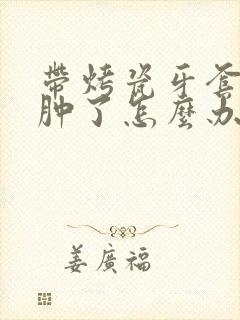 帶烤瓷牙套
肿了怎麼办
姜廣福